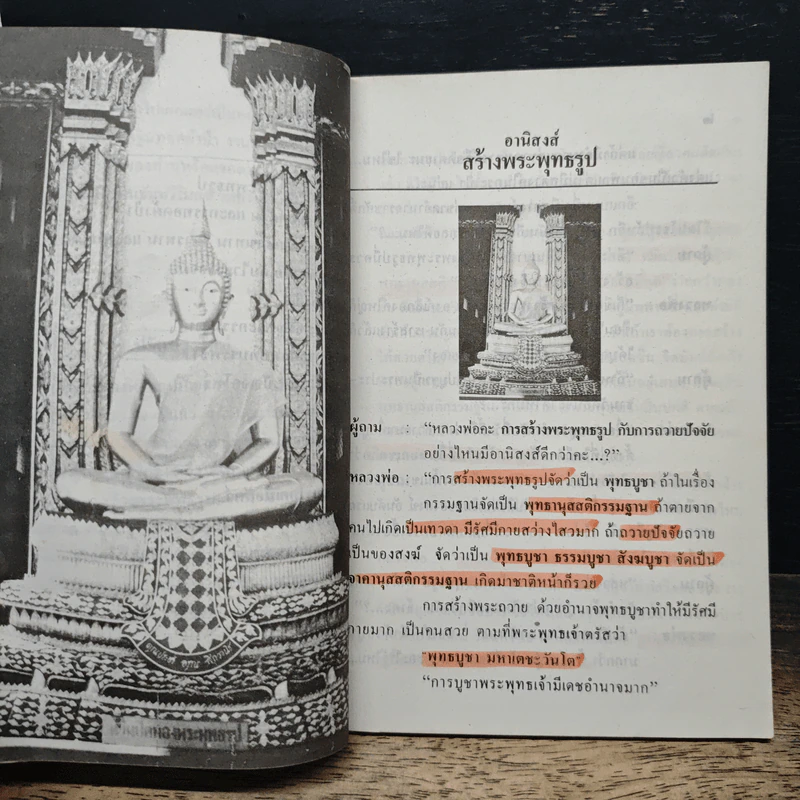 อานิสงส์
สร้างพระพุทธรูป
ผู้ถาม : “หลวงพ่อคะ การสร้างพระพุทธรูป กับการถวายปัจจัย
อย่างไหนมีอานิสงส์ดีกว่าคะ...?”
หลวงพ่อ : “การสร้างพระพุทธรูปจัดว่าเป็น พุทธบูชา ถ้าในเรื่อง
กรรมฐานจัดเป็น พุทธานุสสติกรรมฐาน ถ้าตายจาก
คนไปเกิดเป็นเทวดา มีรัศมีกายสว่างไสวมาก ถ้าถวายปัจจัยถวาย
เป็นของสงฆ์ จัดว่าเป็น พุทธบูชา ธรรมบูชา สังฆบูชา จัดเป็น
จาคานุสสติกรรมฐาน เกิดมาชาติหน้าก็รวย
การสร้างพระถวาย ด้วยอำนาจพุทธบูชาทำให้มีรัศมี
กายมาก เป็นคนสวย ตามที่พระพุทธเจ้าตรัสว่า
“พุทธบูชา มหาเตชะวันโต”
“การบูชาพระพุทธเจ้ามีเดชอำนาจมาก”